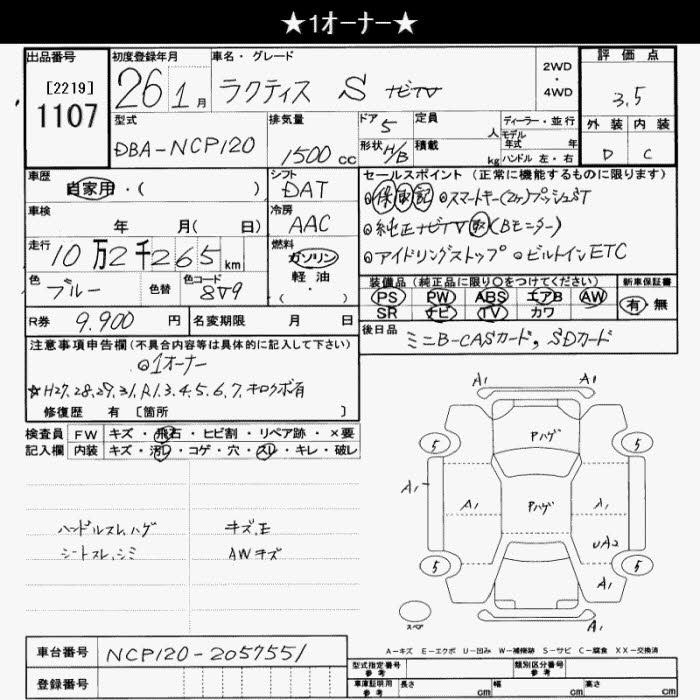 ★1オーナー★
出品番号
[2219]
1107
初度登録年月
26 1月
車名・グレード
ラクティス S ナビTV
2WD
・
4WD
評価点
3.5
外装 内装
D C
型式
DBA-NCP120
排気量
1500 cc
ドア 5
形状 H/B
定員 人
積載 kg
ディーラー・並行
モデル年式 年
ハンドル 左・右
車歴
自家用・( )
シフト
DAT
車検
年 月( 日)
冷房
AAC
走行
10万2千265 km
燃料
ガソリン
軽・油
・( )
色
ブルー
色替
色コード
8V9
R券 9,900 円
名変期限 月 日
セールスポイント (正常に機能するものに限ります)
◎保取記 ◎スマートキー(2ケ)プッシュST
◎純正ナビTV取(Bモニター)
◎アイドリングストップ ◎ビルトインETC
装備品 (純正品に限り○をつけてください)
PS PW ABS エアB AW
SR ナビ TV カワ
新車保証書
有・無
後日品
ミニB-CASカード, SDカード
注意事項申告欄(不具合内容等は具体的に記入して下さい)
◎1オーナー
☆H27,28,29,31,R1,3,4,5,6,7,キロクボ有
修復歴 有 [箇所 ]
検査員記入欄
FW キズ・飛石・ヒビ割・リペア跡・×要
内装 キズ・汚れ・コゲ・穴・スレ・キレ・破レ
ハンドルスレ,ハゲ
シートスレ,シミ
キズ,E
AWキズ
A1 A1
Pハゲ
5 5
A1
A1 Pハゲ A1
UA2
5 5
A1
A1
スペア
A-キズ E-エクボ U-凹み W-補修跡 S-サビ C-腐食 XX-交換済
車台番号
NCP120-2057551
登録番号
型式指定番号 参考
類別区分番号 参考
車庫証明用 参考
長さ cm 幅 cm 高さ cm